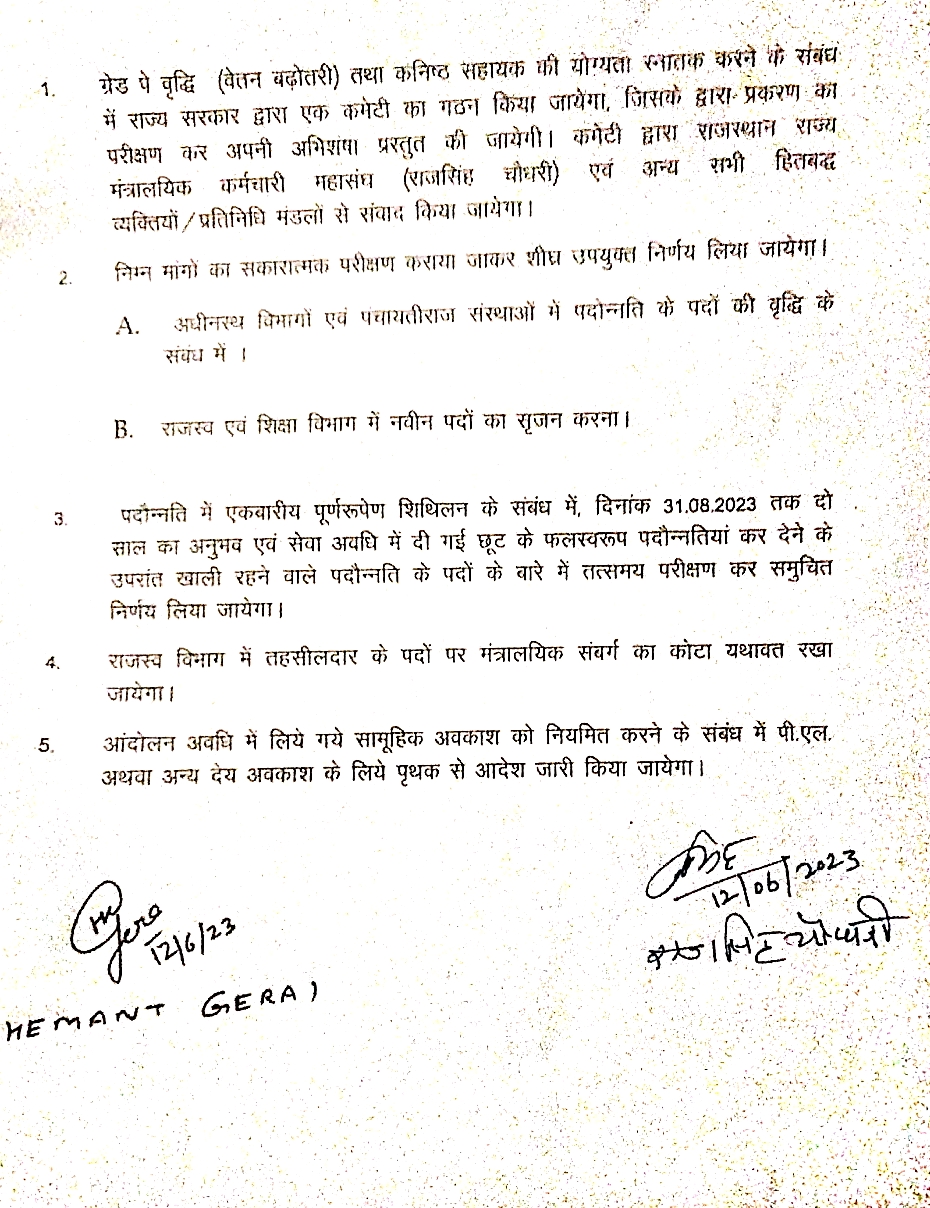 1. ग्रेड पे वृद्धि (वेतन बढ़ोतरी) तथा कनिष्ठ सहायक की योग्यता स्नातक करने के संबंध
में राज्य सरकार द्वारा एक कमेटी का गठन किया जायेगा, जिसके द्वारा प्रकरण का
परीक्षण कर अपनी अभिशंषा प्रस्तुत की जायेगी। कमेटी द्वारा राजस्थान राज्य
मंत्रालयिक कर्मचारी महासंघ (राजसिंह चौधरी) एवं अन्य सभी हितबद्ध
व्यक्तियों/प्रतिनिधि मंडलों से संवाद किया जायेगा।
2. निम्न मांगों का सकारात्मक परीक्षण कराया जाकर शीघ्र उपयुक्त निर्णय लिया जायेगा।
A. अधीनस्थ विभागों एवं पंचायतीराज संस्थाओं में पदोन्नति के पदों की वृद्धि के
संबंध में ।
B. राजस्व एवं शिक्षा विभाग में नवीन पदों का सृजन करना।
3. पदौन्नति में एकबारीय पूर्णरूपेण शिथिलन के संबंध में, दिनांक 31.08.2023 तक दो
साल का अनुभव एवं सेवा अवधि में दी गई छूट के फलस्वरूप पदौन्नतियां कर देने के
उपरांत खाली रहने वाले पदौन्नति के पदों के बारे में तत्समय परीक्षण कर समुचित
निर्णय लिया जायेगा।
4. राजस्व विभाग में तहसीलदार के पदों पर मंत्रालयिक संवर्ग का कोटा यथावत रखा
जायेगा।
5. आंदोलन अवधि में लिये गये सामूहिक अवकाश को नियमित करने के संबंध में पी.एल.
अथवा अन्य देय अवकाश के लिये पृथक से आदेश जारी किया जायेगा।
12/06/2023
राजसिंह चौधरी
Gera
12/6/23
HEMANT GERA)